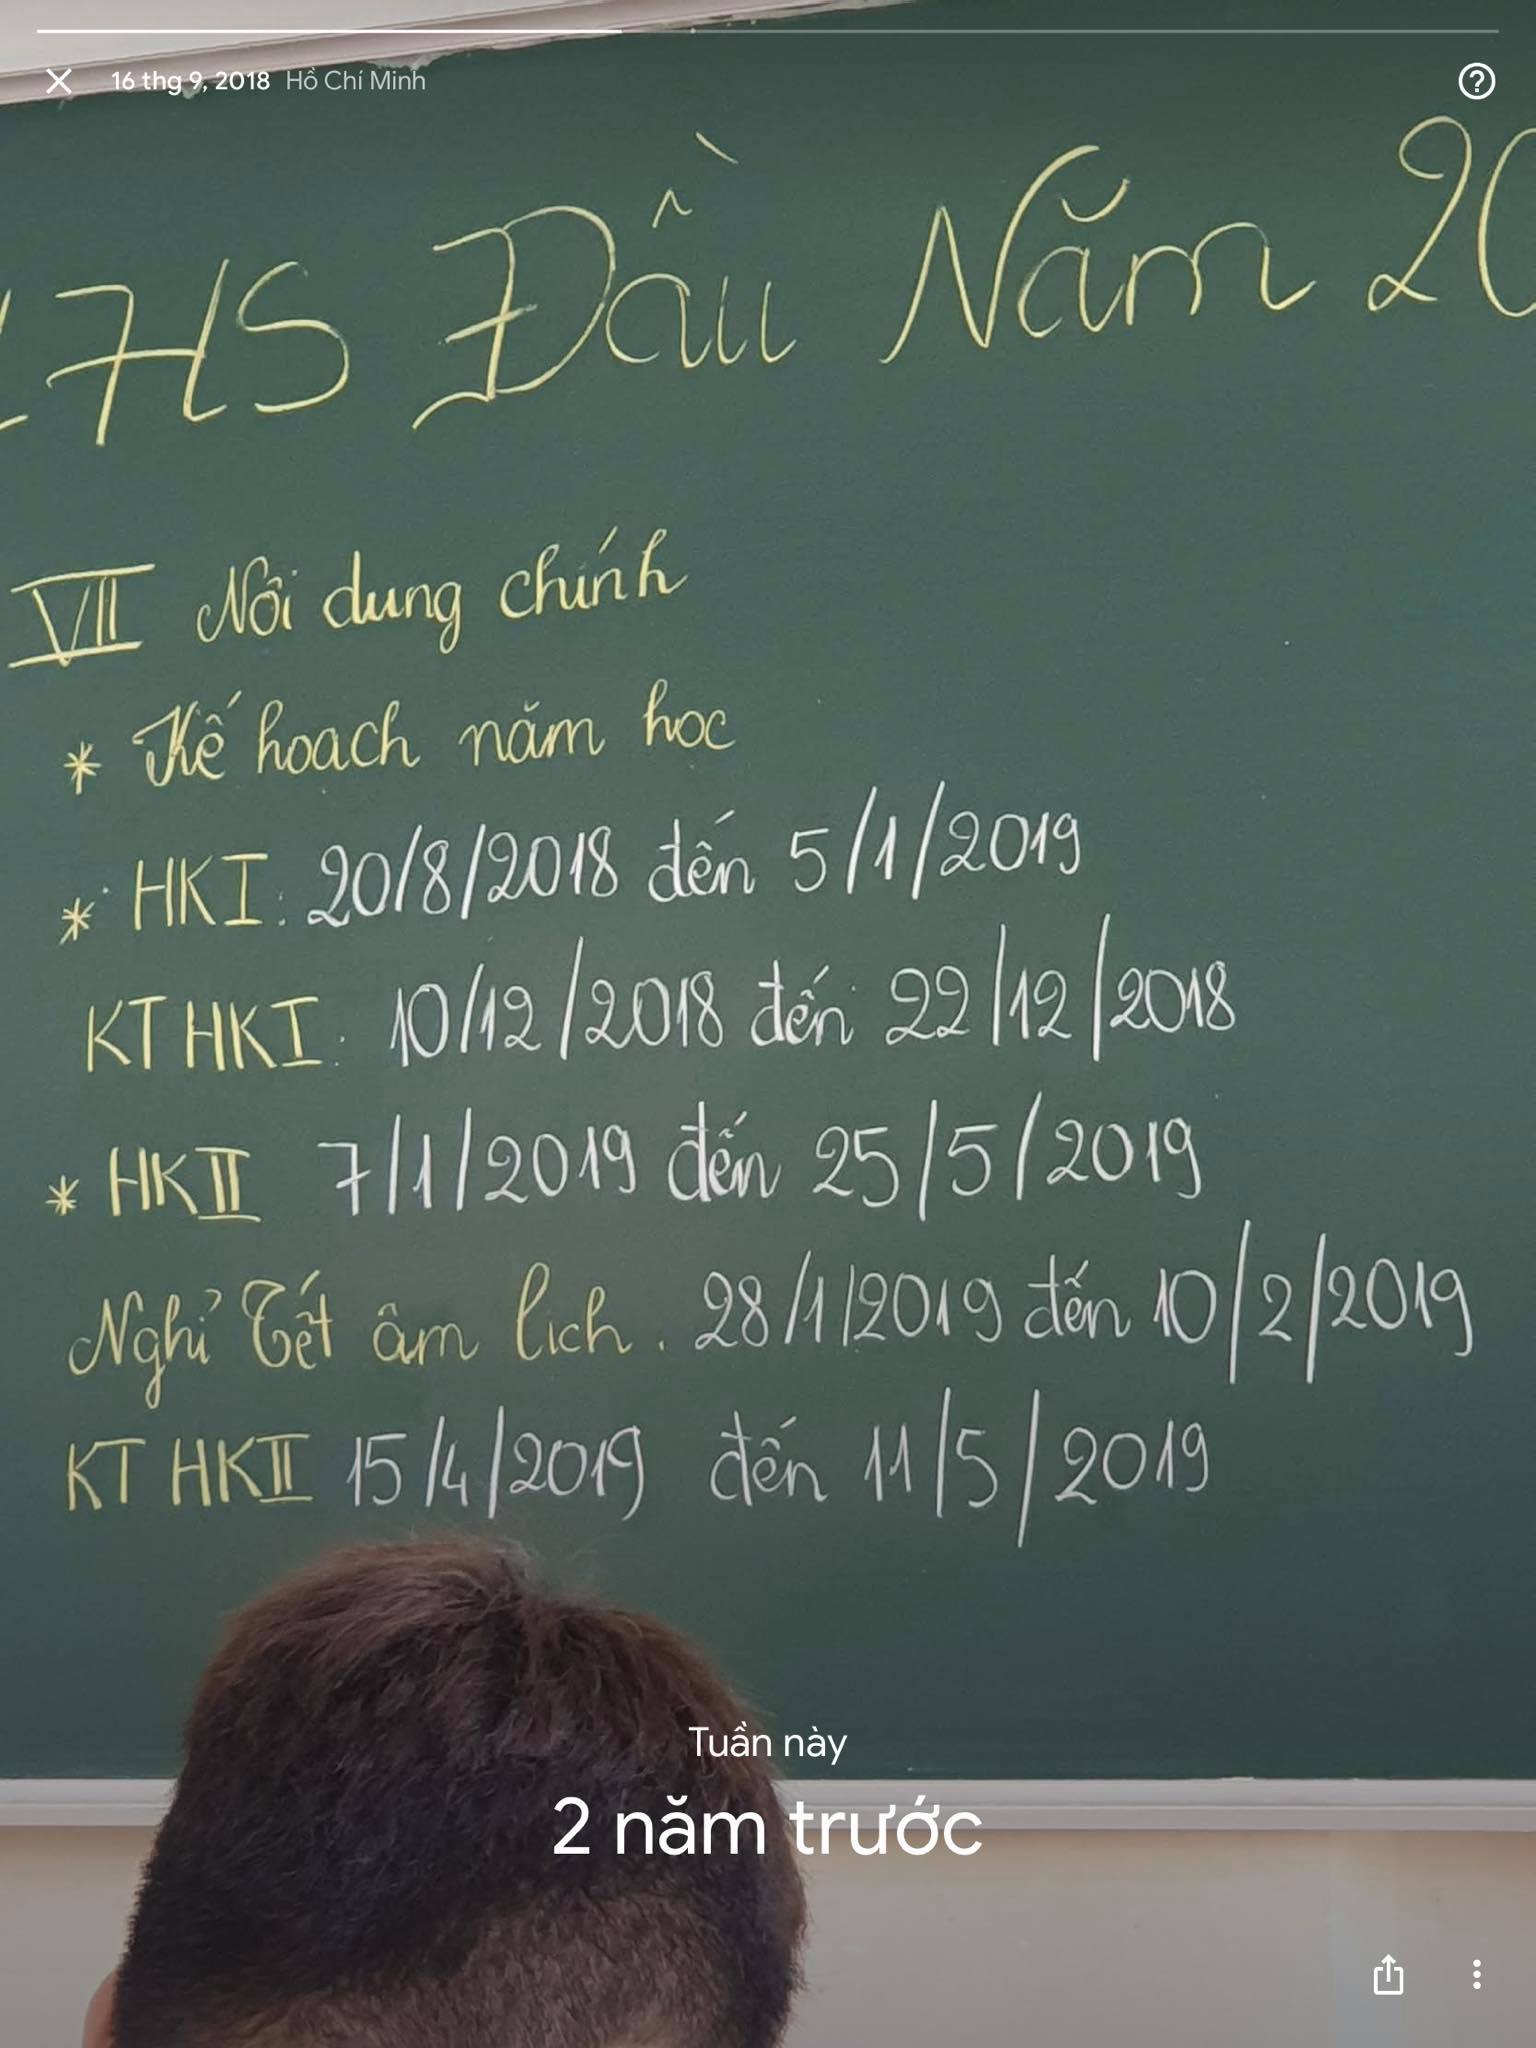 16 thg 9, 2018 Hồ Chí Minh
HS Đầu Năm 20
VII Nội dung chính
* Kế hoạch năm học
* HKI: 20/8/2018 đến 5/1/2019
KT HKI: 10/12/2018 đến 22/12/2018
* HKII 7/1/2019 đến 25/5/2019
Nghỉ Tết âm lịch. 28/1/2019 đến 10/2/2019
KT HKII 15/4/2019 đến 11/5/2019
Tuần này
2 năm trước